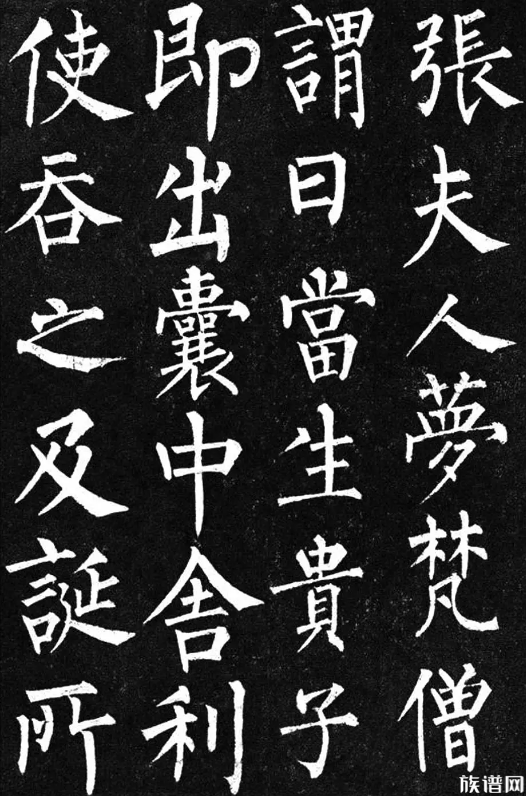 張夫人夢梵僧
謂曰當生貴子
即出囊中舍利
使吞之及誕所
族谱网